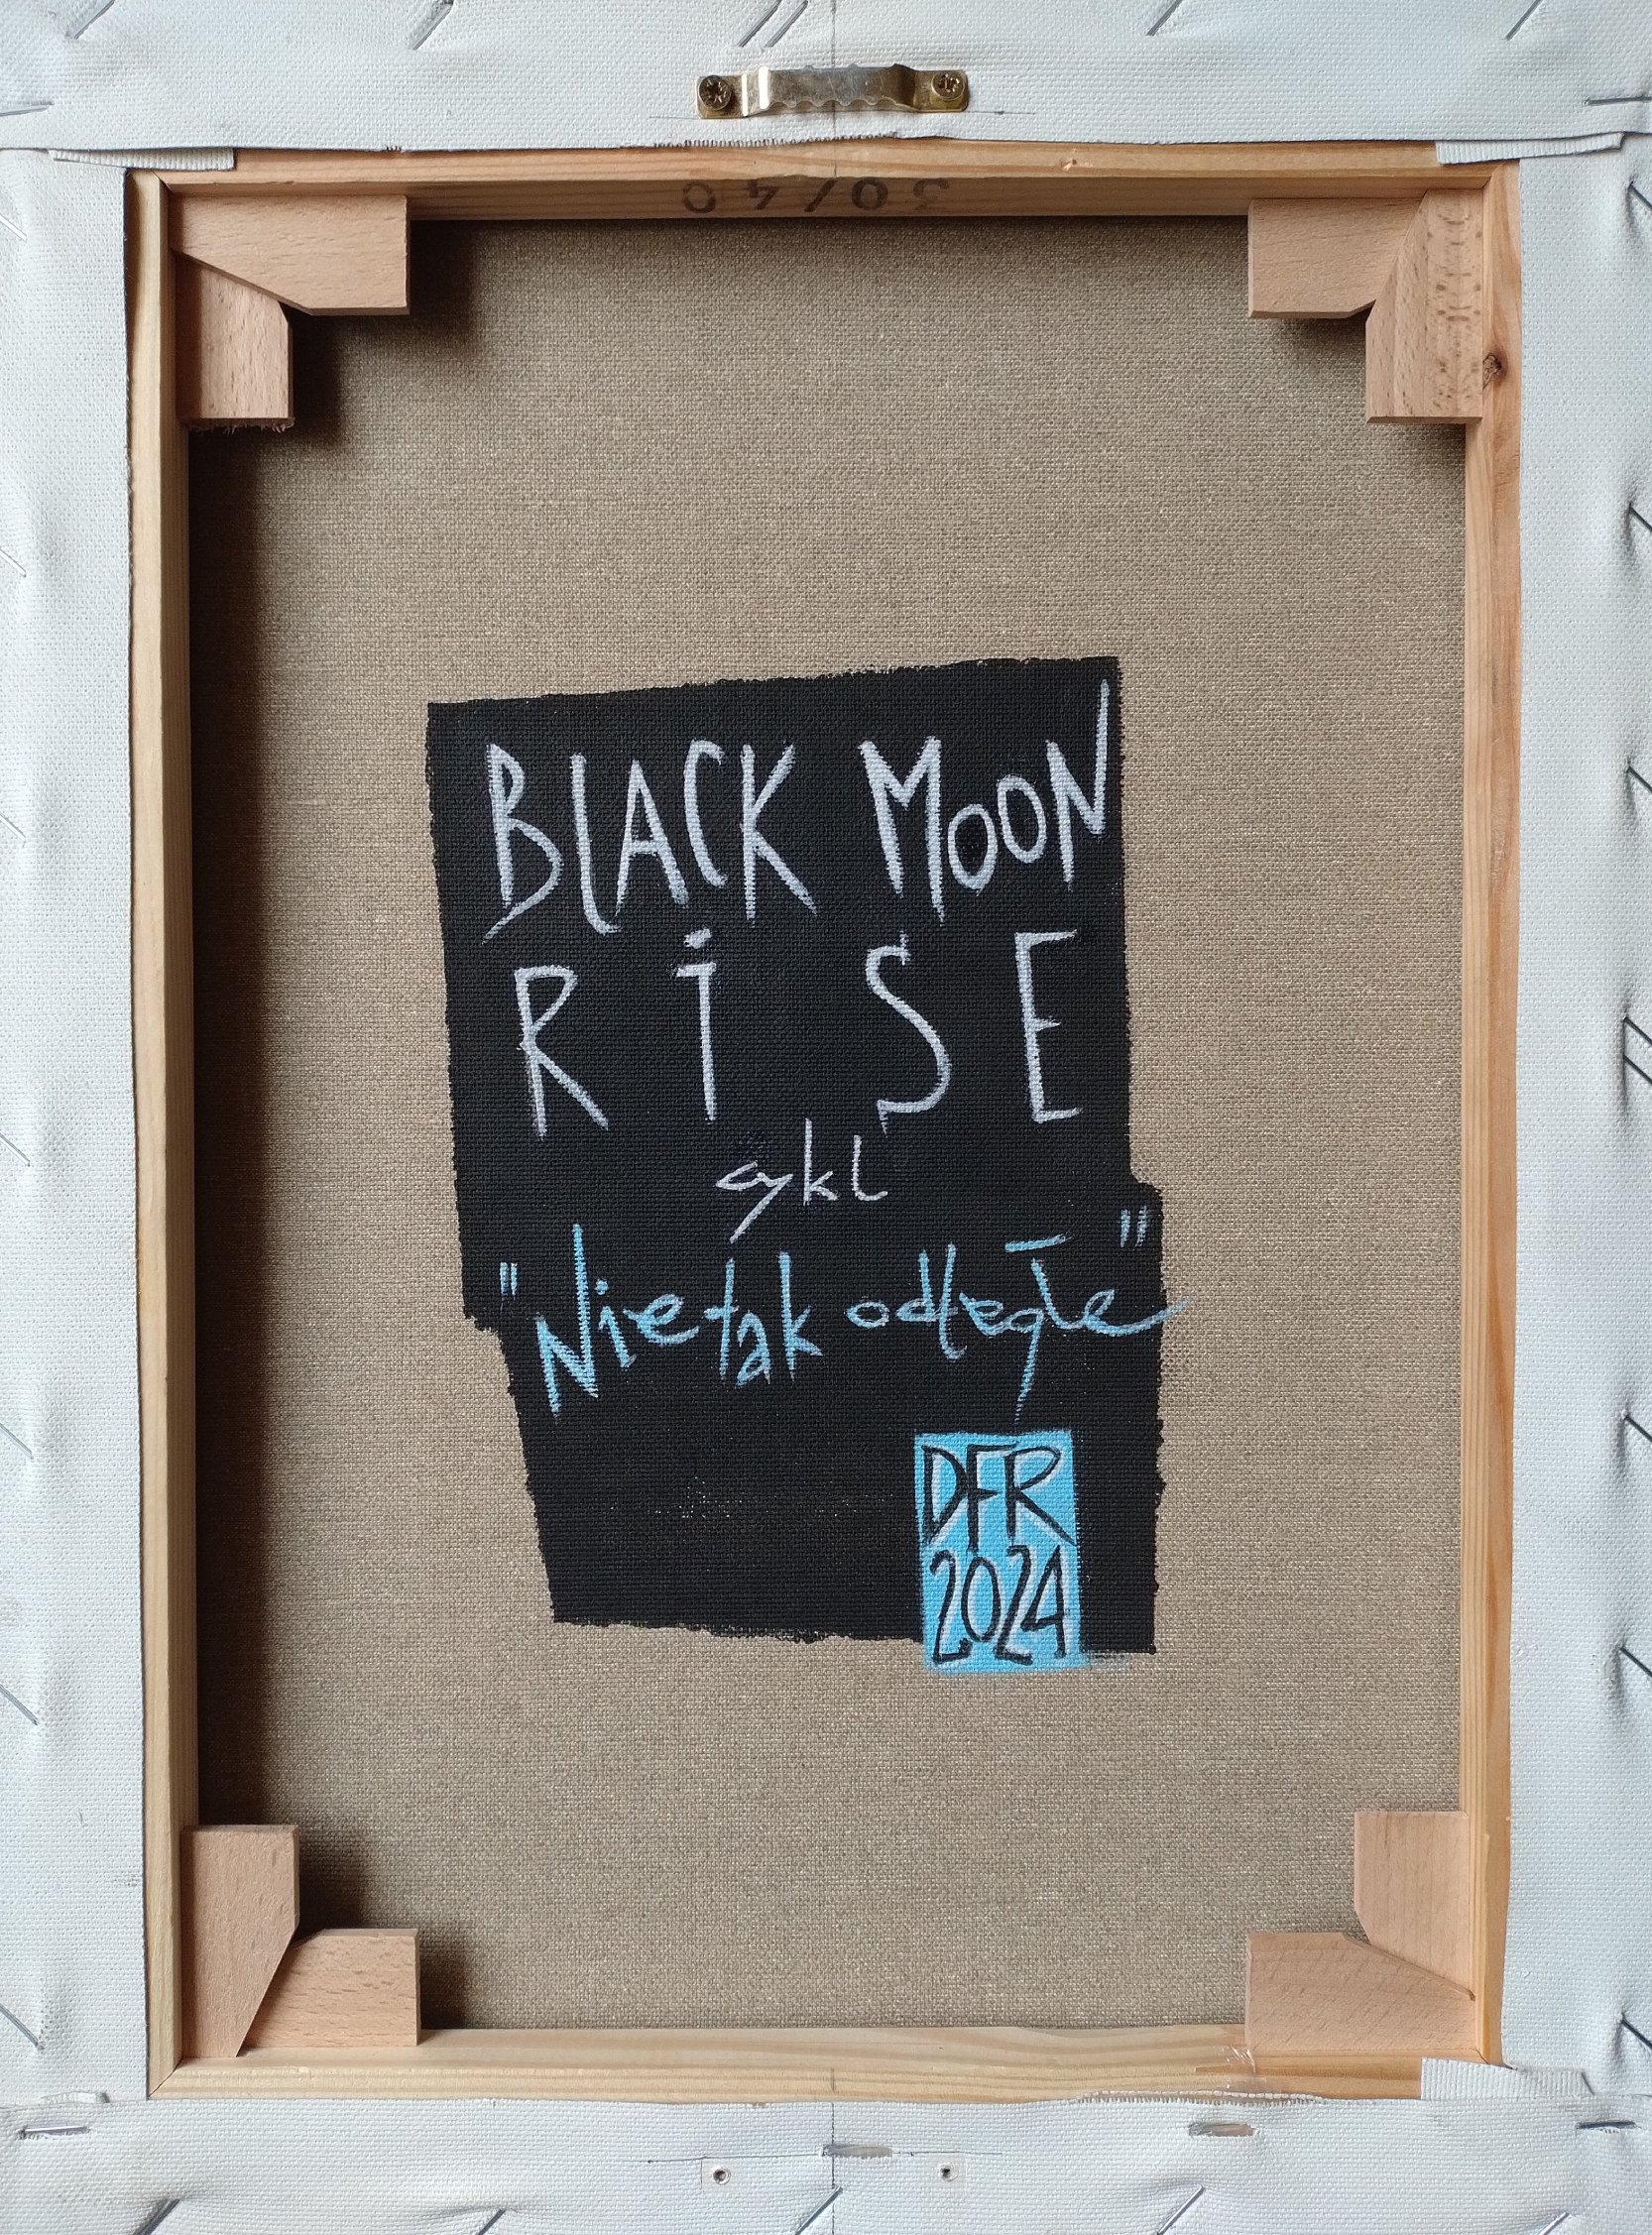 30/40
BLACK MOON
RiSE
cykl
"Nie tak odległe"
DFR
2024